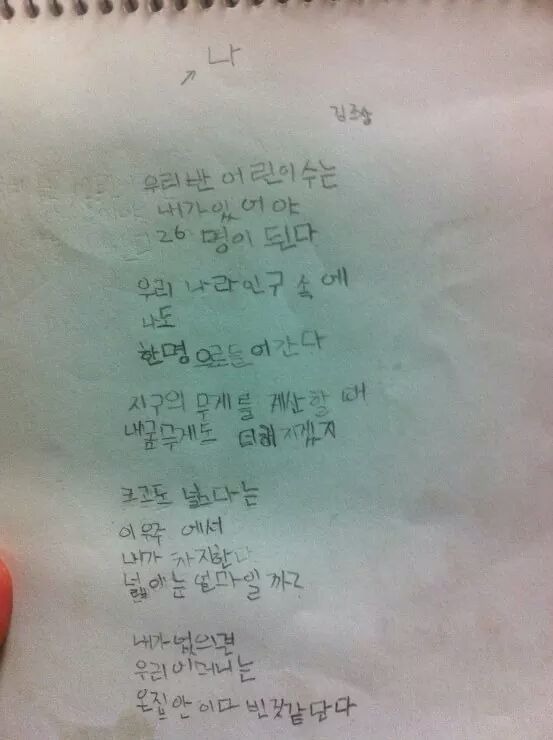 나
김종상
우리반 어린이수는
내가있어야
26 명이 된다
우리 나라인구 속에
나도
한명으로들어간다
지구의 무게를 계산할 때
내몸무게도 더해지겠지
크고도 넓다는
이 우주 에서
내가 차지한다
넓이는 얼마일 까?
내가없의면
우리어머니는
온집안이다 빈것같단다